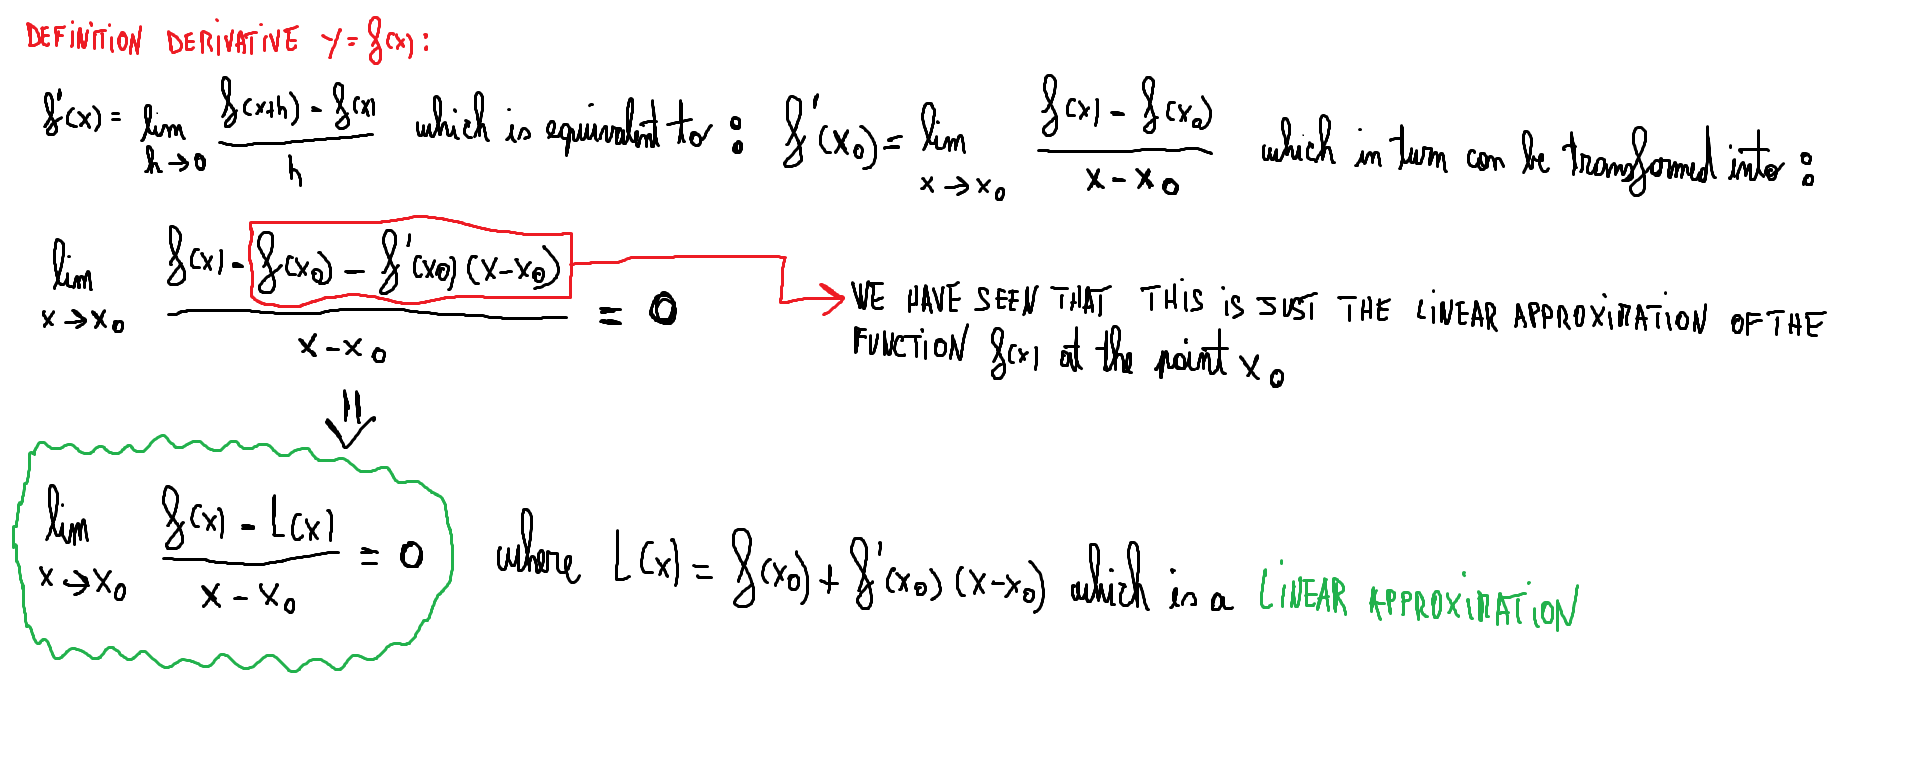 DEFINITION DERIVATIVE y = f(x):
f'(x) = lim h→0 (f(x+h) - f(x))/h which is equivalent to: f'(x₀) = lim x→x₀ (f(x) - f(x₀))/(x - x₀) which in turn can be transformed into:
lim x→x₀ (f(x) - f(x₀) - f'(x₀)(x-x₀))/(x-x₀) = 0
WE HAVE SEEN THAT THIS IS JUST THE LINEAR APPROXIMATION OF THE
FUNCTION f(x) at the point x₀
⇓
lim x→x₀ (f(x) - L(x))/(x - x₀) = 0 where L(x) = f(x₀) + f'(x₀)(x-x₀) which is a LINEAR APPROXIMATION